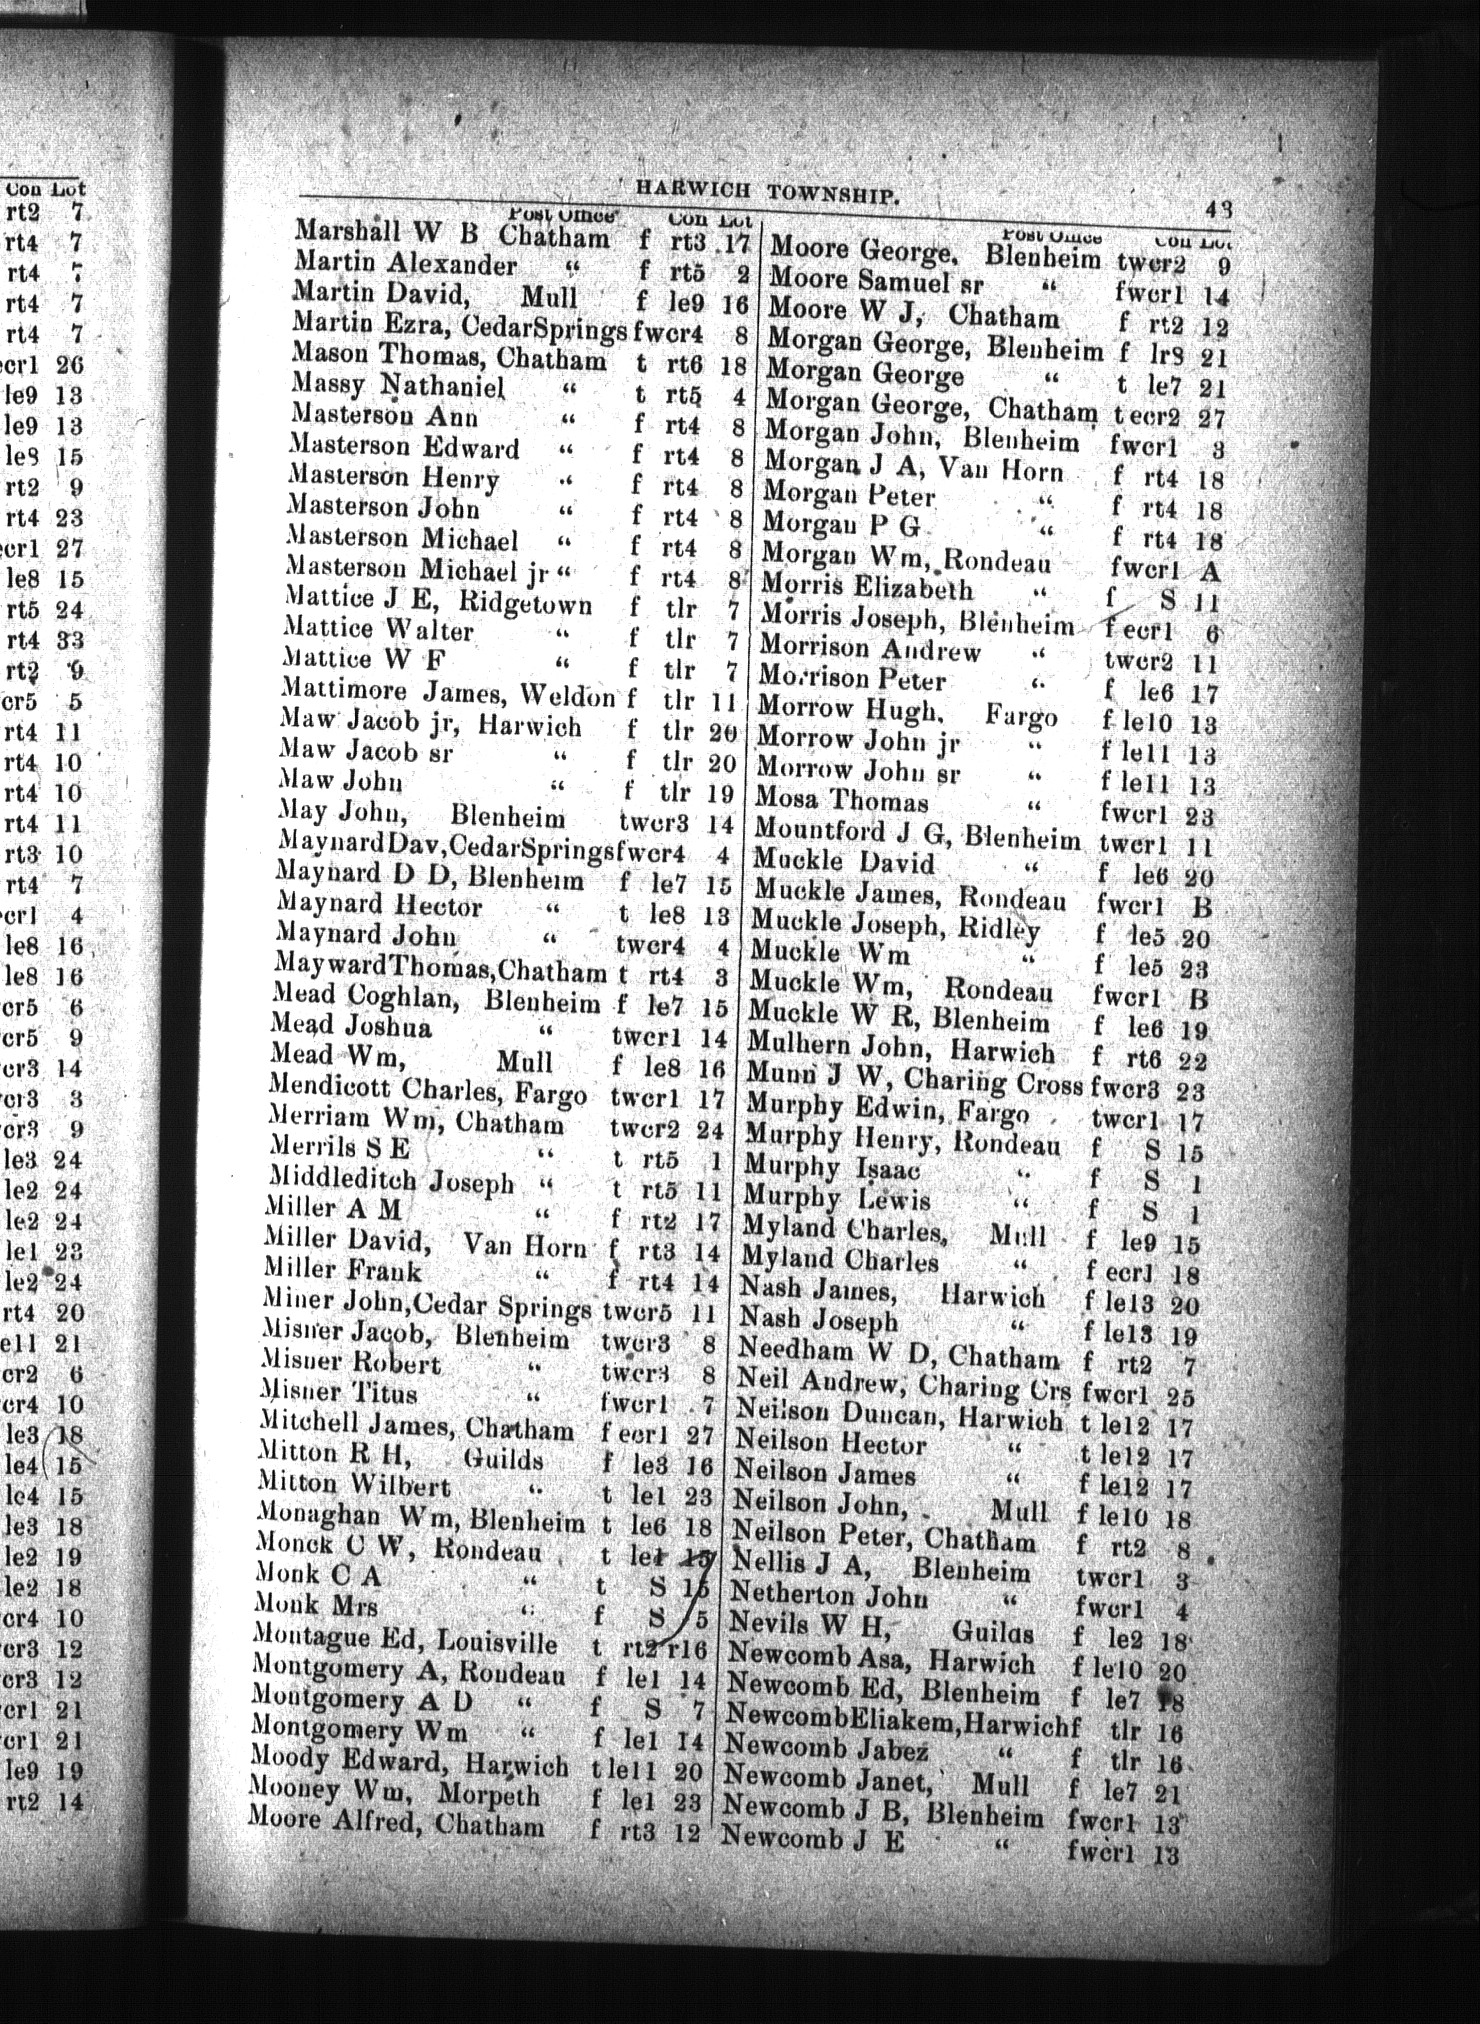 Con Lot
rt2 7
rt4 7
rt4 7
rt4 7
rt4 7
cr1 26
le9 13
le9 13
le8 15
rt2 9
rt4 23
cr1 27
le8 15
rt5 24
rt4 33
rt2 9
cr5 5
rt4 11
rt4 10
rt4 10
rt4 11
rt3 10
rt4 7
cr1 4
le8 16
le8 16
cr5 6
cr5 9
cr3 14
cr3 3
cr3 9
le3 24
le2 24
le2 24
le1 23
le2 24
rt4 20
e11 21
cr2 6
cr4 10
le3 18
le4 15
le4 15
le3 18
le2 19
le2 18
cr4 10
cr3 12
cr3 12
cr1 21
cr1 21
le9 19
rt2 14
HARWICH TOWNSHIP.
43
Post Office Con Lot
Marshall W B Chatham f rt3 17
Martin Alexander “ f rt5 2
Martin David, Mull f le9 16
Martin Ezra, CedarSprings fwcr4 8
Mason Thomas, Chatham t rt6 18
Massy Nathaniel “ t rt5 4
Masterson Ann “ f rt4 8
Masterson Edward “ f rt4 8
Masterson Henry “ f rt4 8
Masterson John “ f rt4 8
Masterson Michael “ f rt4 8
Masterson Michael jr “ f rt4 8
Mattice J E, Ridgetown f tlr 7
Mattice Walter “ f tlr 7
Mattice W F “ f tlr 7
Mattimore James, Weldon f tlr 11
Maw Jacob jr, Harwich f tlr 20
Maw Jacob sr “ f tlr 20
Maw John “ f tlr 19
May John, Blenheim twcr3 14
MaynardDav,CedarSpringsfwcr4 4
Maynard D D, Blenheim f le7 15
Maynard Hector “ t le8 13
Maynard John “ twcr4 4
MaywardThomas,Chatham t rt4 3
Mead Coghlan, Blenheim f le7 15
Mead Joshua “ twcr1 14
Mead Wm, Mull f le8 16
Mendicott Charles, Fargo twcr1 17
Merriam Wm, Chatham twcr2 24
Merrils S E “ t rt5 1
Middleditch Joseph “ t rt5 11
Miller A M “ f rt2 17
Miller David, Van Horn f rt3 14
Miller Frank “ f rt4 14
Miner John,Cedar Springs twcr5 11
Misner Jacob, Blenheim twcr3 8
Misner Robert “ twcr3 8
Misner Titus “ fwcr1 7
Mitchell James, Chatham f ecr1 27
Mitton R H, Guilds f le3 16
Mitton Wilbert “ t le1 23
Monaghan Wm, Blenheim t le6 18
Monck C W, Rondeau t le1 15
Monk C A “ t S 15
Monk Mrs “ f S 5
Montague Ed, Louisville t rt2 r16
Montgomery A, Rondeau f le1 14
Montgomery A D “ f S 7
Montgomery Wm “ f le1 14
Moody Edward, Harwich t le11 20
Mooney Wm, Morpeth f le1 23
Moore Alfred, Chatham f rt3 12
Post Office Con Lot
Moore George, Blenheim twcr2 9
Moore Samuel sr “ fwcr1 14
Moore W J, Chatham f rt2 12
Morgan George, Blenheim f lr8 21
Morgan George “ t le7 21
Morgan George, Chatham t ecr2 27
Morgan John, Blenheim fwcr1 3
Morgan J A, Van Horn f rt4 18
Morgan Peter “ f rt4 18
Morgan P G “ f rt4 18
Morgan Wm, Rondeau fwcr1 A
Morris Elizabeth “ f S 11
Morris Joseph, Blenheim f ecr1 6
Morrison Andrew “ twcr2 11
Morrison Peter “ f le6 17
Morrow Hugh, Fargo f le10 13
Morrow John jr “ f le11 13
Morrow John sr “ f le11 13
Mosa Thomas “ fwcr1 23
Mountford J G, Blenheim twcr1 11
Muckle David “ f le6 20
Muckle James, Rondeau fwcr1 B
Muckle Joseph, Ridley f le5 20
Muckle Wm “ f le5 23
Muckle Wm, Rondeau fwcr1 B
Muckle W R, Blenheim f le6 19
Mulhern John, Harwich f rt6 22
Munn J W, Charing Cross fwcr3 23
Murphy Edwin, Fargo twcr1 17
Murphy Henry, Rondeau f S 15
Murphy Isaac “ f S 1
Murphy Lewis “ f S 1
Myland Charles, Mull f le9 15
Myland Charles “ f ecr1 18
Nash James, Harwich f le13 20
Nash Joseph “ f le13 19
Needham W D, Chatham f rt2 7
Neil Andrew, Charing Crs fwcr1 25
Neilson Duncan, Harwich t le12 17
Neilson Hector “ t le12 17
Neilson James “ f le12 17
Neilson John, Mull f le10 18
Neilson Peter, Chatham f rt2 8
Nellis J A, Blenheim twcr1 3
Netherton John “ fwcr1 4
Nevils W H, Guilds f le2 18
Newcomb Asa, Harwich f le10 20
Newcomb Ed, Blenheim f le7 18
NewcombEliakem,Harwichf tlr 16
Newcomb Jabez “ f tlr 16
Newcomb Janet, Mull f le7 21
Newcomb J B, Blenheim fwcr1 13
Newcomb J E “ fwcr1 13